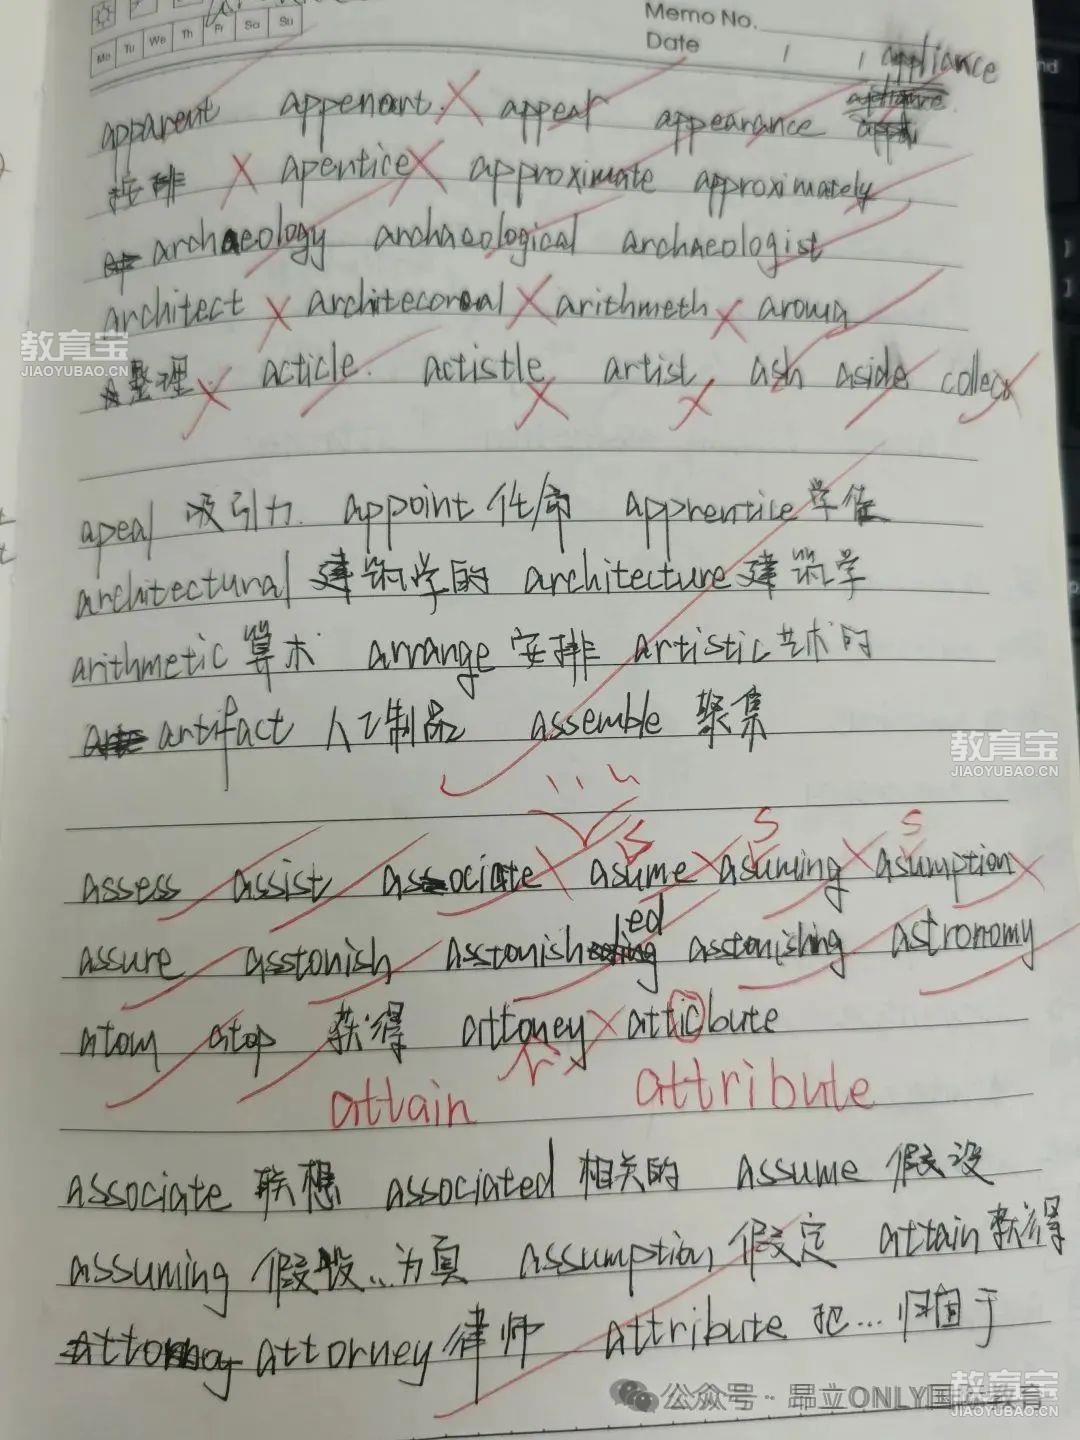 Memo No.
Mo Tu We Th Fr Sa Su
Date / / appliance
apparent appenant appear appearance
按排 apentice approximate approximately
archaeology archaeological archaeologist
architect architecoral arithmeth aroma
整理 acticle. actistle artist ash aside collect
教育宝
JIAOYUBAO.CN
apeal 吸引力 appoint 任命 apprentice 学徒
architectural 建筑学的 architecture 建筑学
arithmetic 算术 arrange 安排 artistic 艺术的
artifact 人工制品 assemble 聚集
教育宝
JIAOYUBAO.CN
s s s
assess assist associate asume asuming asumption
assure asstonish asstonished asstonishing astronomy
atom atop 获得 attoney atticbute
r
attain attribute
associate 联想 associated 相关的 assume 假设
assuming 假设..为真 assumption 假定 attain 获得
attorney 律师 attribute 把...归因于
公众号·昂立ONLY国际教育
教育宝
JIAOYUBAO.CN